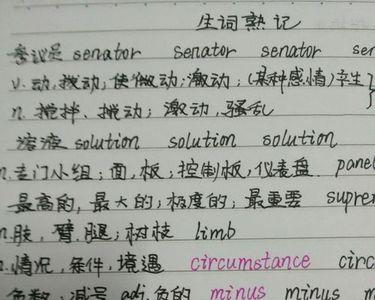 生词熟记
参议员 senator senator senator sen
v. 动,拨动;使微动;激动;(某种感情)产生
n. 搅拌、搅动;激动,骚乱
溶液 solution solution solution
n. 专门小组;面,板;控制板,仪表盘 panel
最高的,最大的;极度的;最重要 supre
n. 肢,臂,腿;树枝 limb
n. 情况,条件,境遇 circumstance circ
负数;减号 adj. 负的 minus minus m